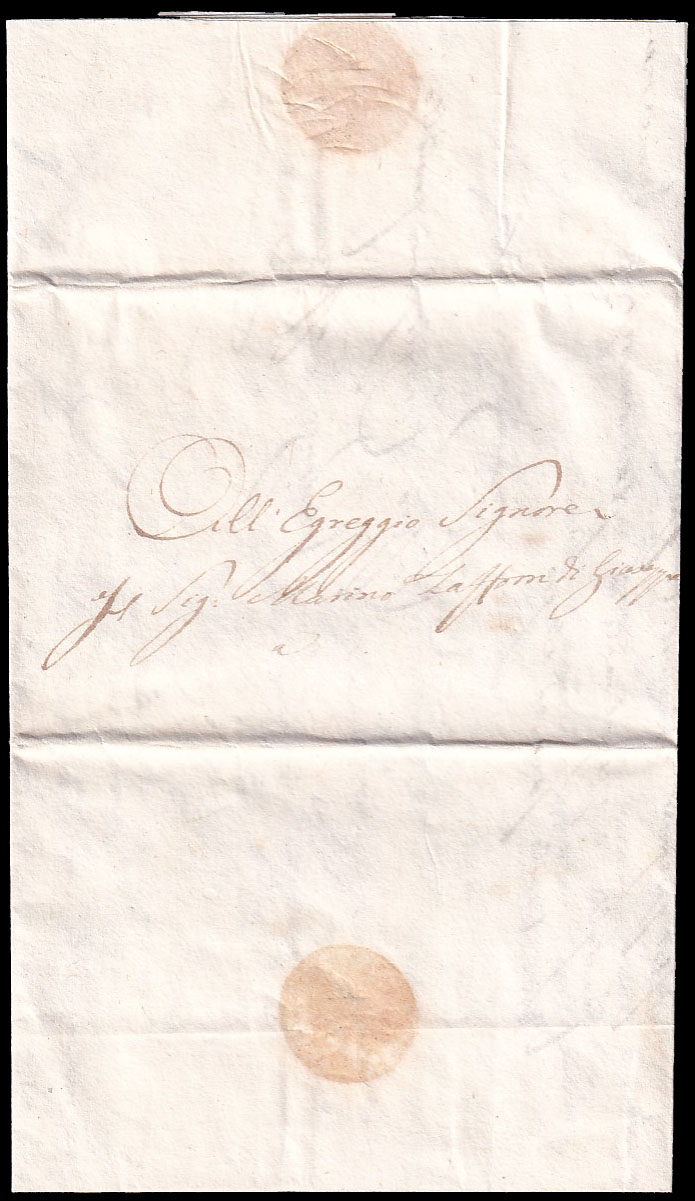 All' Egreggio Signore
Il Sig: Marino Zaffron di Giuseppe
a